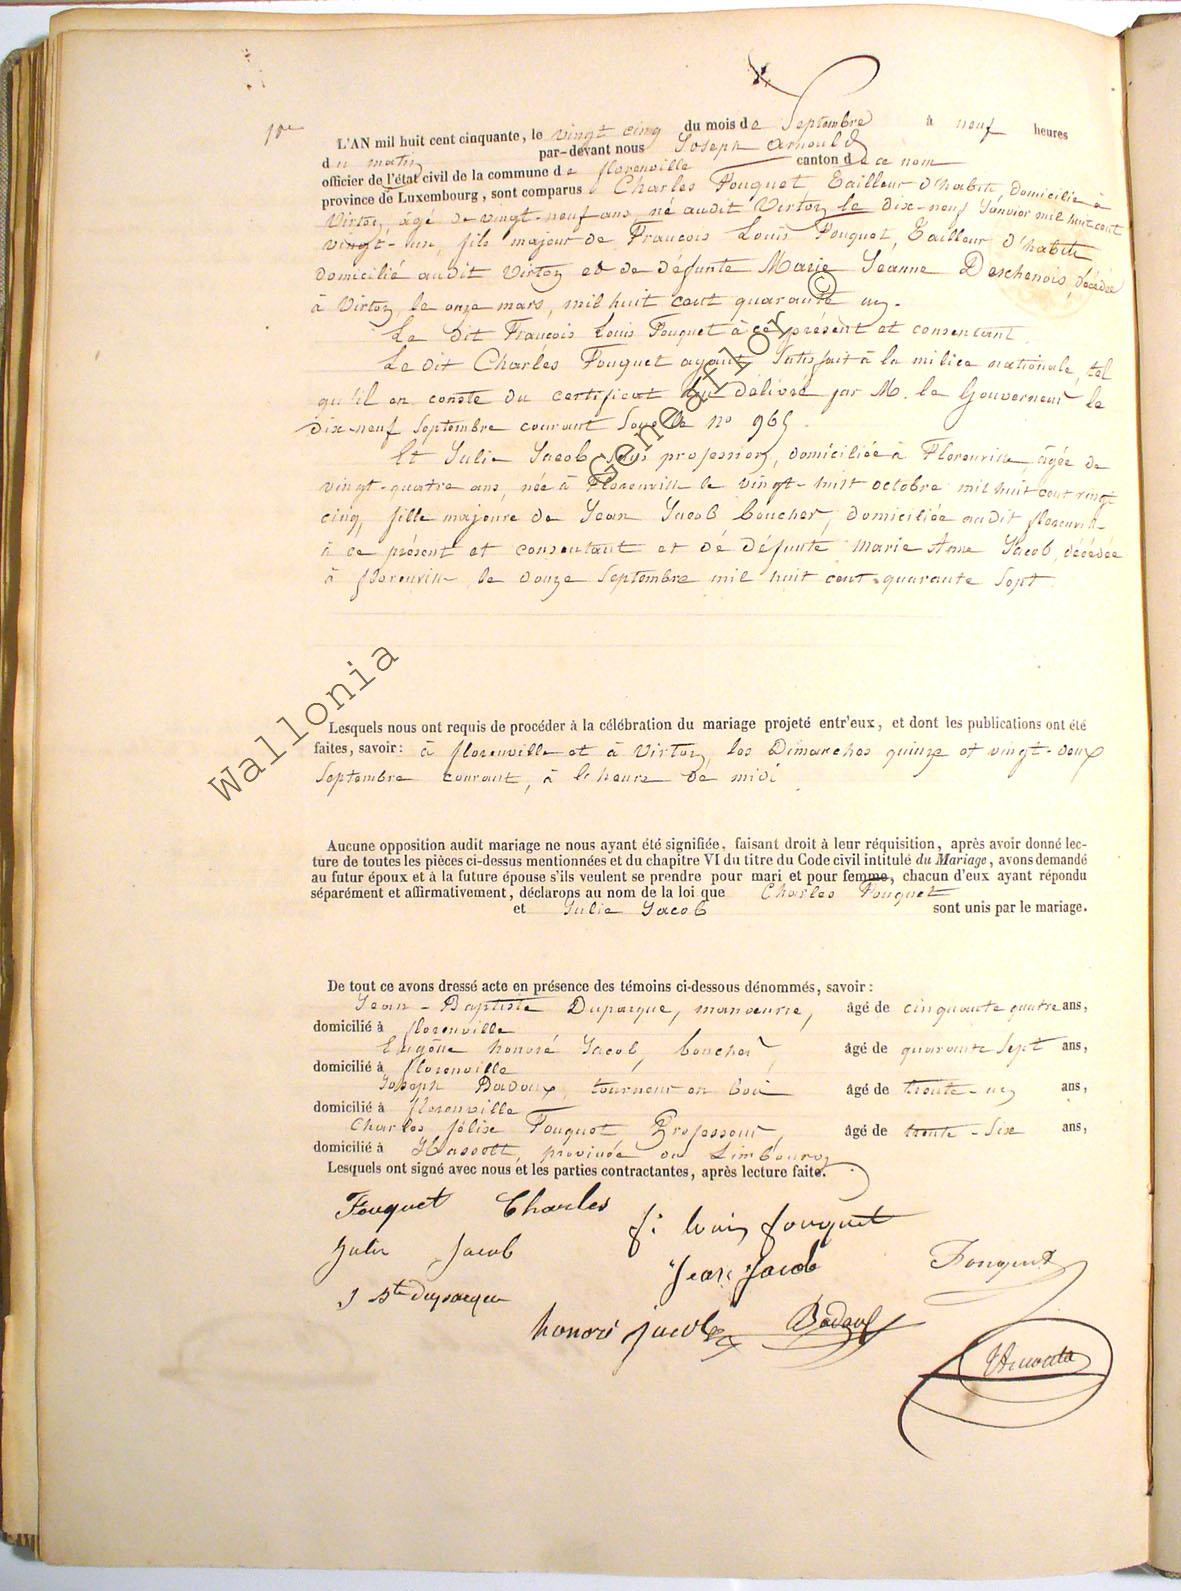 10e
L'AN mil huit cent cinquante, le vingt cinq du mois de Septembre à neuf heures
du matin par-devant nous Joseph Arnould
officier de l'état civil de la commune de florenville canton de ce nom
province de Luxembourg, sont comparus Charles Fouquet, Tailleur d'habits, domicilié à
Virton, âgé de vingt-neuf ans, né audit Virton le dix-neuf Janvier mil huit cent
vingt-un, fils majeur de Francois Louis Fouquet, Tailleur d'habits
domicilié audit Virton et de défunte Marie Jeanne Deschenois, décédée
à Virton, le onze mars, mil huit cent quarante un.
Le dit François Louis Fouquet à ce présent et consentant
Le dit Charles Fouquet ayant Satisfait à la milice nationale, tel
qu'il en conste du certificat lui délivré par M. le Gouverneur le
dix-neuf Septembre courant Sous le no 965.
Et Julie Jacob Sans profession, domiciliée à Florenville, âgée de
vingt-quatre ans, née à Florenville le vingt-huit octobre mil huit cent vingt
cinq, fille majeure de Jean Jacob boucher, domiciliée audit florenville
à ce présent et consentant et de défunte Marie Anne Jacob, décédée
à florenville le douze Septembre mil huit cent quarante Sept
Lesquels nous ont requis de procéder à la célébration du mariage projeté entr'eux, et dont les publications ont été
faites, savoir : à florenville et à Virton, les Dimanches quinze et vingt-deux
Septembre courant, à l'heure de midi
Aucune opposition audit mariage ne nous ayant été signifiée, faisant droit à leur réquisition, après avoir donné lec-
ture de toutes les pièces ci-dessus mentionnées et du chapitre VI du titre du Code civil intitulé du Mariage, avons demandé
au futur époux et à la future épouse s'ils veulent se prendre pour mari et pour femme, chacun d'eux ayant répondu
séparément et affirmativement, déclarons au nom de la loi que Charles Fouquet
et Julie Jacob sont unis par le mariage.
De tout ce avons dressé acte en présence des témoins ci-dessous dénommés, savoir :
Jean-Baptiste Duparque, manoeuvre, âgé de cinquante quatre ans,
domicilié à florenville
Eugène honoré Jacob, boucher, âgé de quarante Sept ans,
domicilié à florenville
Joseph Badoux, tourneur en bois âgé de trente-un ans,
domicilié à florenville
Charles félix Fouquet Professeur, âgé de trente-Six ans,
domicilié à Hasselt, province du Limbourg
Lesquels ont signé avec nous et les parties contractantes, après lecture faite.
Fouquet Charles
f: louis fouquet
Julie Jacob
Jean Jacob
Fouquet
J Bte Duparque
honoré jacob
Badoux
Wallonia © Geneaflor